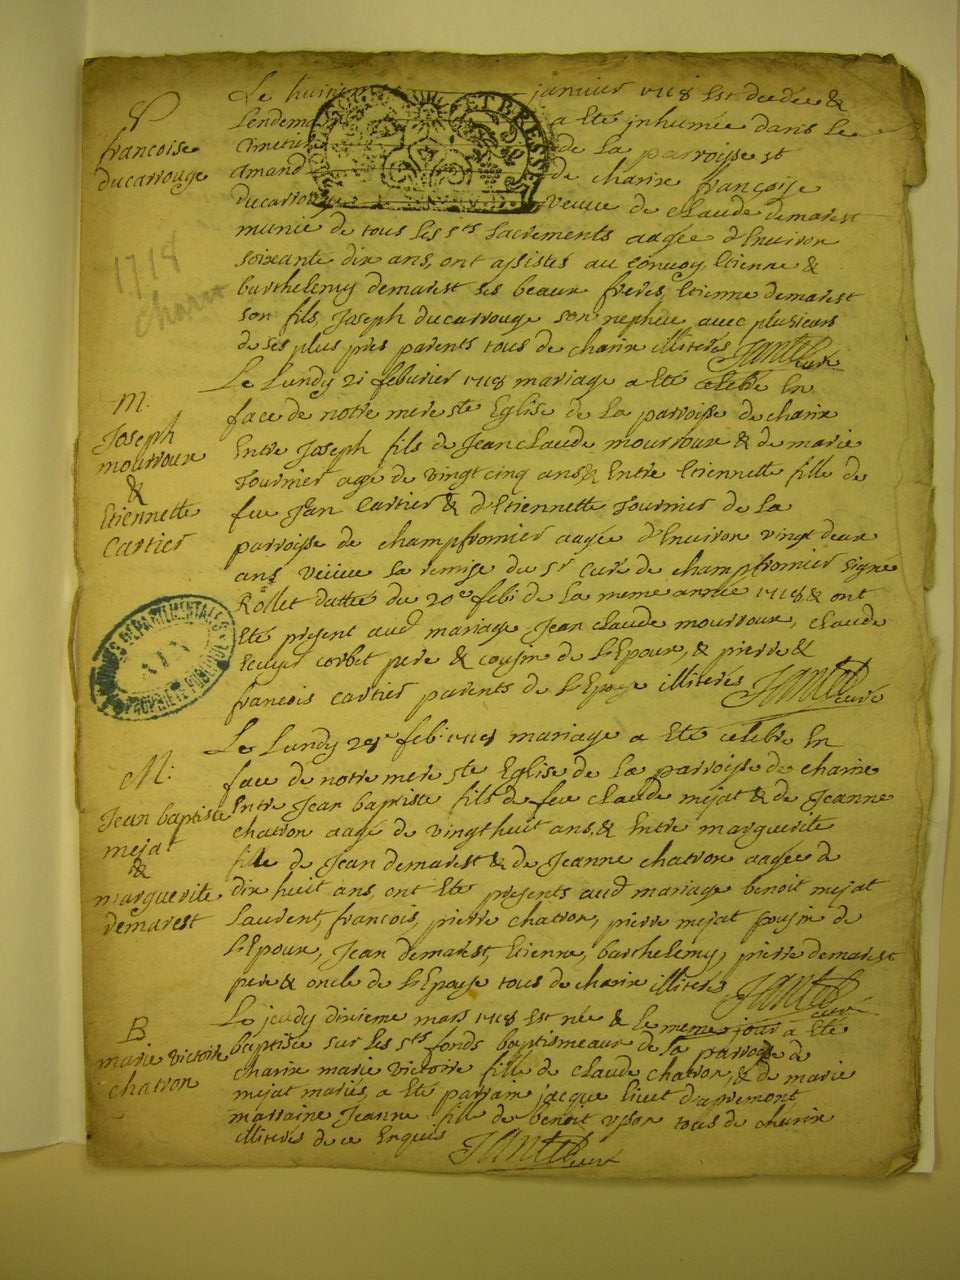 S
francoise
ducarrouge
1718
charix
Le huitie janvier 1718 est decedée &
Lendema a eté inhumée dans le
cimetier de la parroisse st
amand de charix françoise
ducarrouge veuve de claude demarest
munie de tous les sts sacrements aagée d'Environ
soixante dix ans, ont assistes au convoy Etienne &
barthelemy demarest ses beaux freres, Etienne demarest
son fils, Joseph ducarrouge son nepheu avec plusieurs
de ses plus pres parents tous de charix illiterés curé
ET BRESSE
M.
Joseph
mourroux
&
Etiennette
Cartier
Le Lundy 21 febvrier 1718 mariage a eté celebré En
face de notre mere ste Eglise de la parroisse de charix
Entre Joseph fils de Jean claude mourroux & de marie
Tournier agé de vingt cinq ans & Entre Etiennette fille de
feu Jean Cartier & d'Etiennette Tournier de la
parroisse de champfromier aagée d'Environ vingt deux
ans veüue la remise du sr curé de champfromier signé
Rollet dattée du 20e feb: de la meme année 1718 & ont
Eté present aud mariage Jean claude mourroux, claude
corbet pere & cousin de L'Epoux, & pierre &
francois cartier parents de L'Epouse illiterés curé
ARCHIVES DEPARTEMENTALES
AIN
PROPRIETE PUBLIQUE
M:
Jean baptiste
mejat
&
marguerite
demarest
Le Lundy feb: 1718 mariage a eté celebré En
face de notre mere ste Eglise de la parroisse de charix
Entre Jean baptiste fils de feu claude mejat & de Jeanne
chatron aagé de vingthuit ans, & Entre marguerite
fille de Jean demarest & de Jeanne chatron aagée de
dix huit ans, ont Eté presents aud mariage benoit mejat
Laurent, francois, pierre chatron, pierre mejat de
L'Epoux, Jean demarest, Etienne, barthelemy, pierre demarest
pere & oncle de L'Epouse tous de charix illiterés curé
B
marie victoire
chatron
Le jeudy dixieme mars 1718 est née & le meme jour a eté
baptisée sur les sts fonds baptismeaux de la parroisse de
charix marie victoire fille de claude chatron, & de marie
mejat mariés, a eté parrain jacque d'apremont
marraine Jeanne fille de benoit tous de charix
illiterés de ce Enquis curé